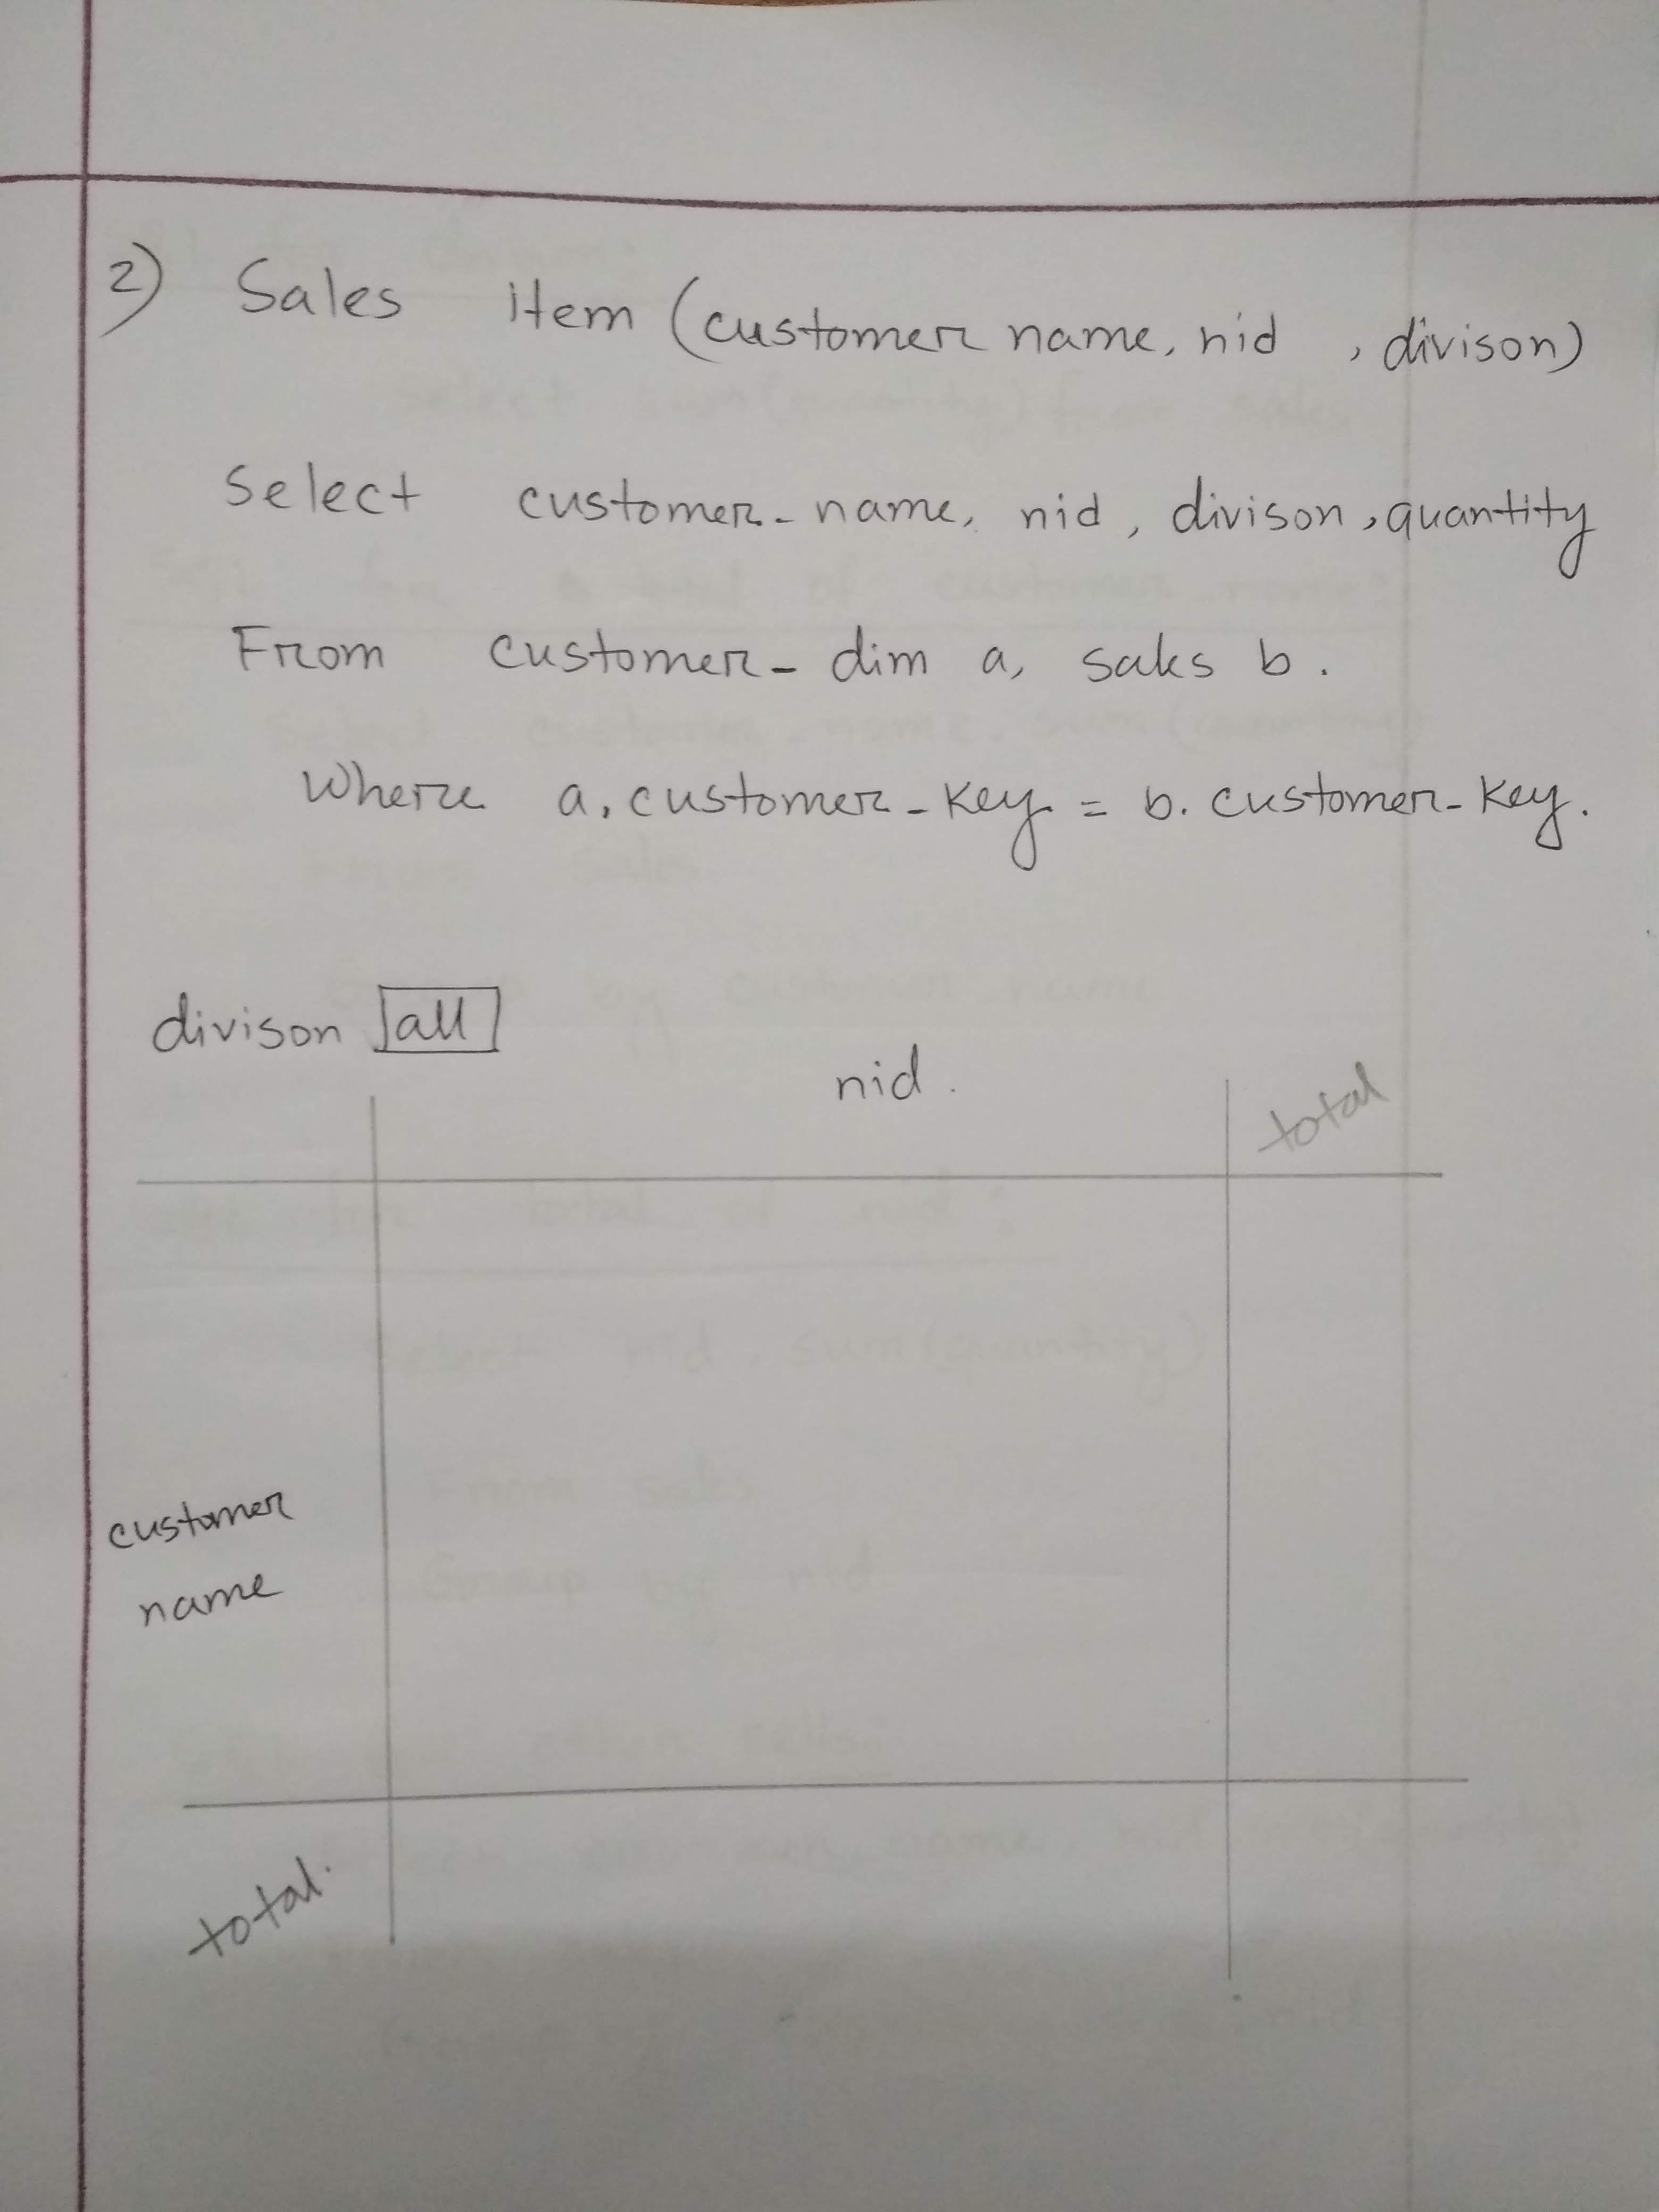 2) Sales item (customer name, nid , divison)
Select customer_name, nid, divison, quantity
From customer_dim a, sales b.
Where a.customer_key = b.customer_key.
divison all
nid.
total
customer
name
total.